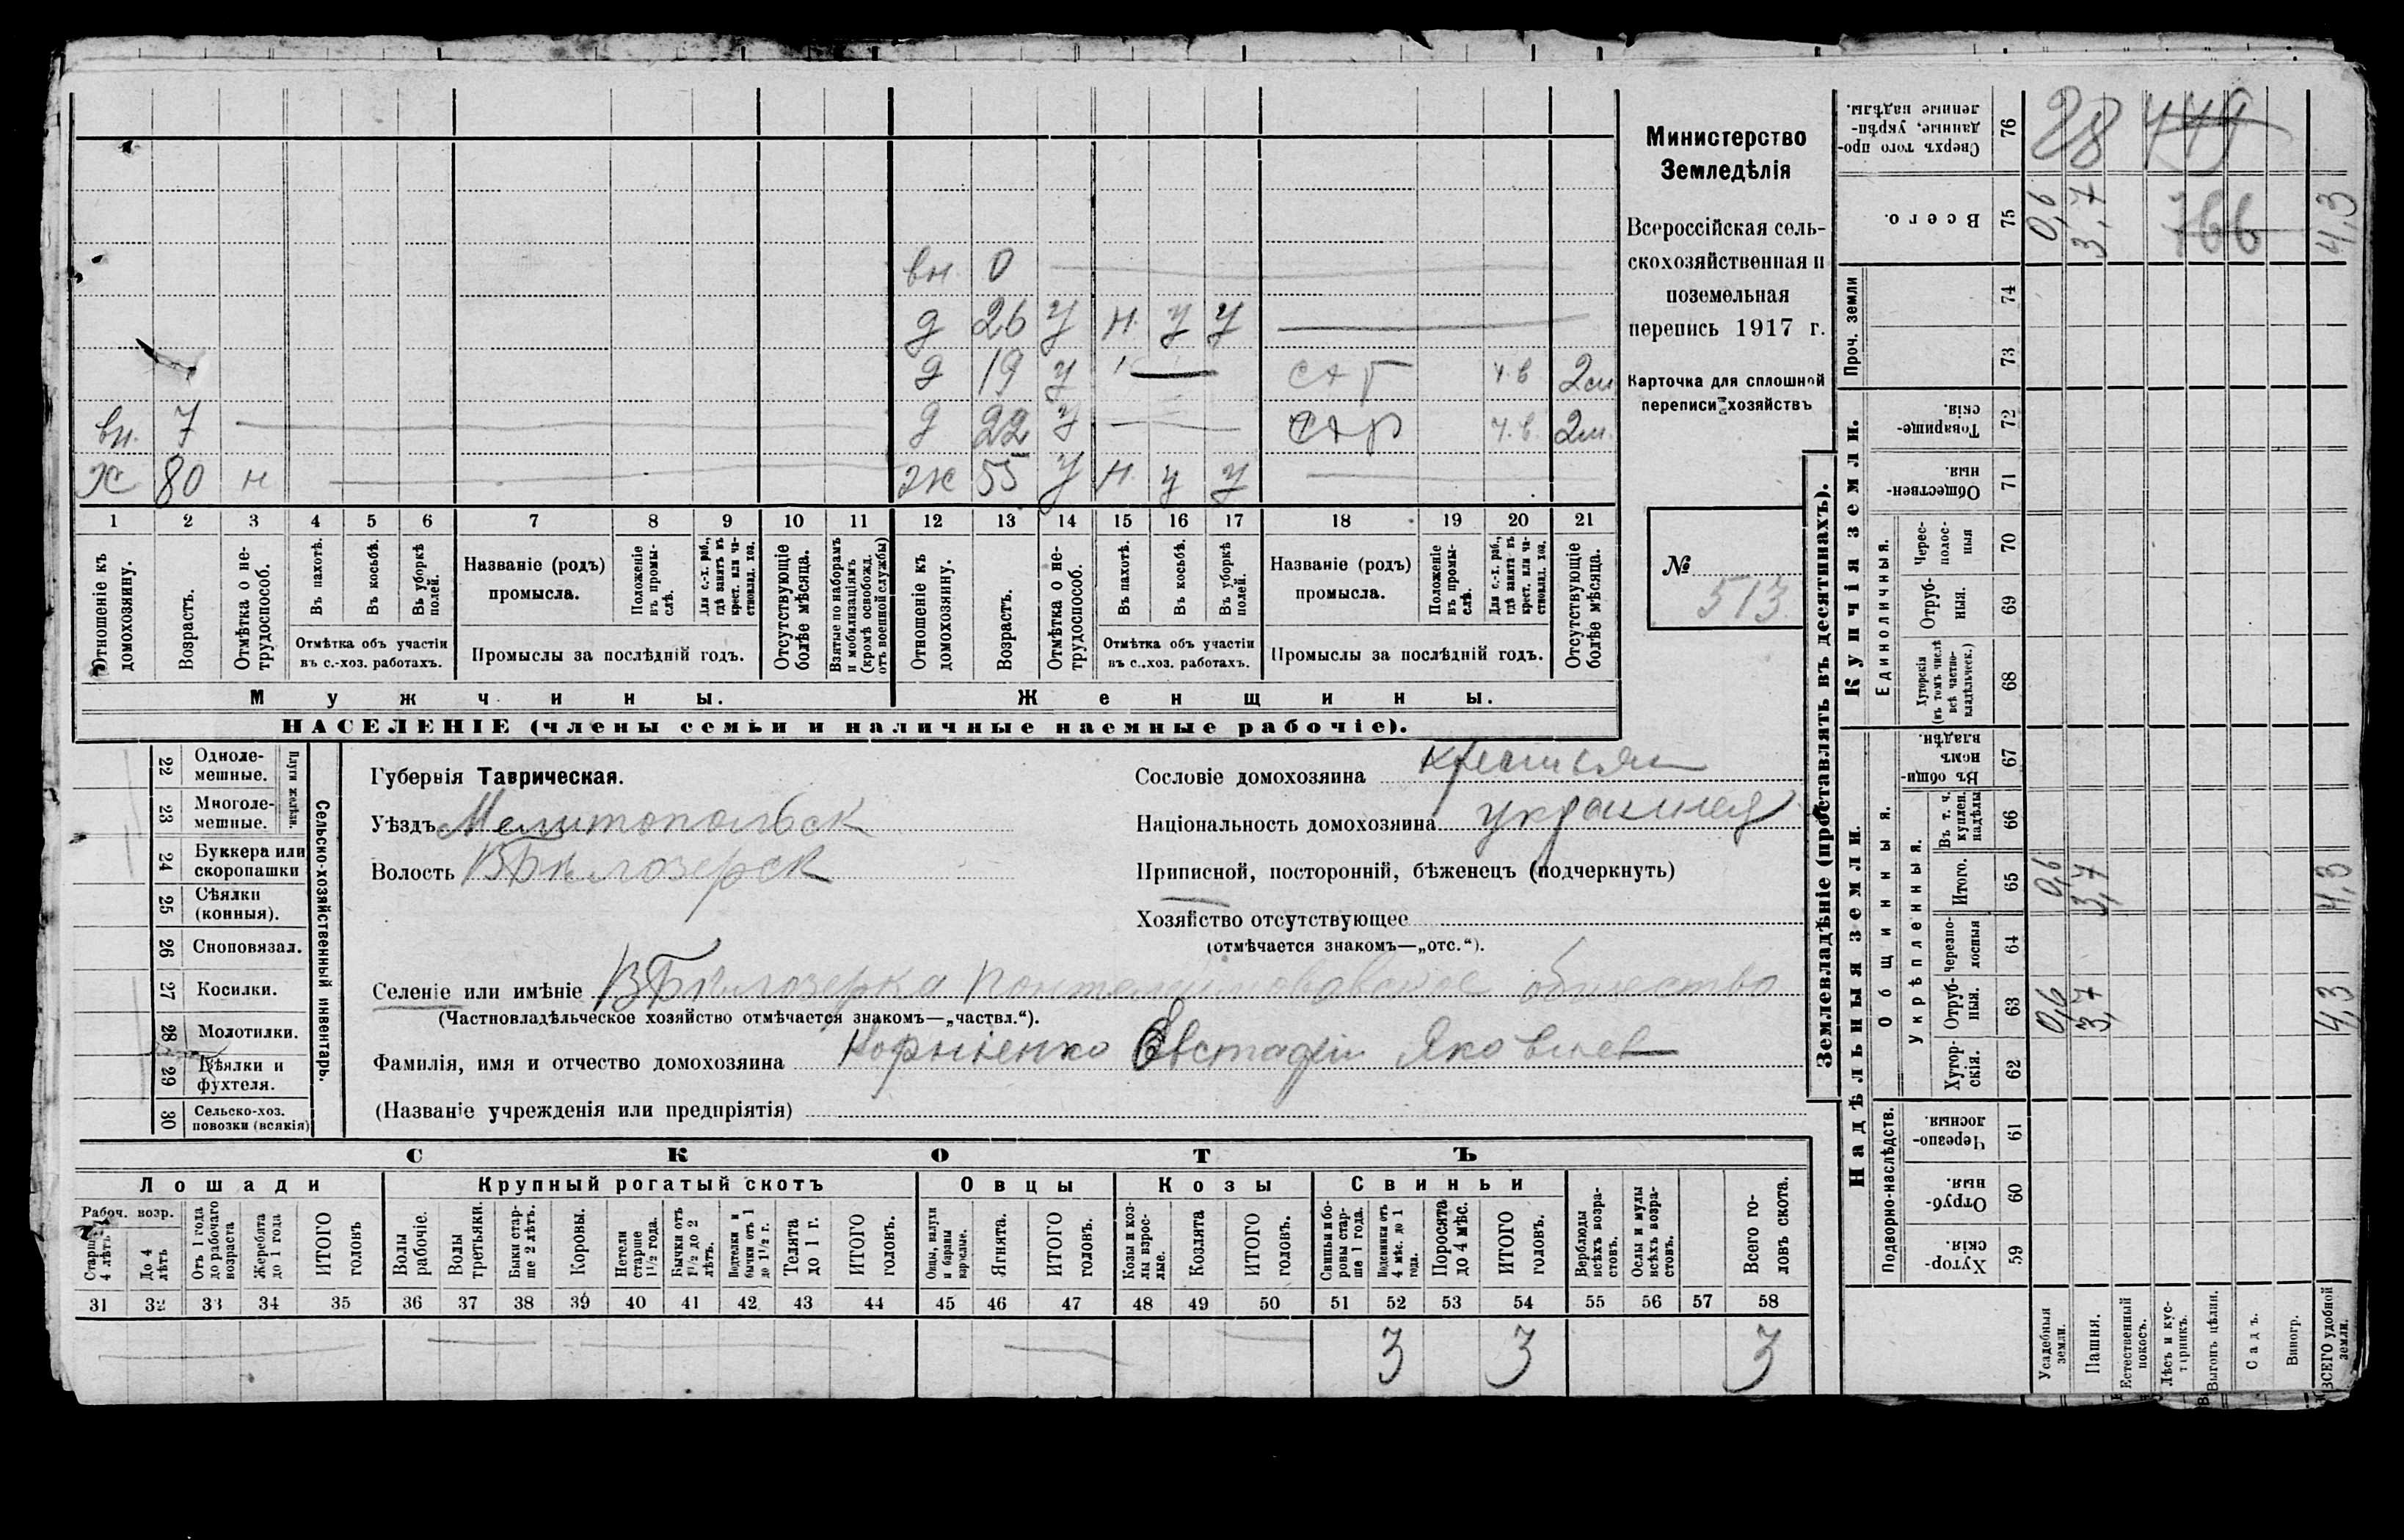 Министерство
Земледѣлія
Всероссійская сель-
скохозяйственная и
поземельная
перепись 1917 г.
Карточка для сплошной
переписи хозяйствъ
№ 513
вн 0
д 26 у н. у у
д 19 у ч.в 2 м
вн. 7 д 22 у ч.в. 2 м.
х 80 н ж 55 у н. у у
1 2 3 4 5 6 7 8 9 10 11 12 13 14 15 16 17 18 19 20 21
Отношеніе къ домохозяину.
Возрастъ.
Отмѣтка о не-трудоспособ.
Въ пахотѣ.
Въ косьбѣ.
Въ уборкѣ полей.
Отмѣтка объ участіи въ с.-хоз. работахъ.
Названіе (родъ) промысла.
Положеніе въ промы-слѣ.
Для с.-х. раб., гдѣ занятъ въ крест. или ча-стновлад. хоз.
Промыслы за послѣдній годъ.
Отсутствующіе болѣе мѣсяца.
Взятые по наборамъ и мобилизаціямъ (кромѣ освобожд. отъ военной службы)
Отношеніе къ домохозяину.
Возрастъ.
Отмѣтка о не-трудоспособ.
Въ пахотѣ.
Въ косьбѣ.
Въ уборкѣ полей.
Отмѣтка объ участіи въ с.-хоз. работахъ.
Названіе (родъ) промысла.
Положеніе въ промы-слѣ.
Для с.-х. раб., гдѣ занята въ крест. или ча-стновлад. хоз.
Промыслы за послѣдній годъ.
Отсутствующіе болѣе мѣсяца.
Мужчины. Женщины.
НАСЕЛЕНІЕ (члены семьи и наличные наемные рабочіе).
Сельско-хозяйственный инвентарь.
Плуги желѣзн.
22 Одноле-мешные.
23 Многоле-мешные.
24 Буккера или скоропашки
25 Сѣялки (конныя).
26 Сноповязал.
27 Косилки.
28 Молотилки.
29 Вѣялки и фухтеля.
30 Сельско-хоз. повозки (всякія)
Губернія Таврическая.
Уѣздъ Мелитопольск
Волость ВБѣлозерск
Сословіе домохозяина крестьян
Національность домохозяина украинец
Приписной, посторонній, бѣженецъ (подчеркнуть)
Хозяйство отсутствующее
(отмѣчается знакомъ—„отс.“).
Селеніе или имѣніе ВБѣлозерка общество
(Частновладѣльческое хозяйство отмѣчается знакомъ—„частвл.“).
Фамилія, имя и отчество домохозяина Корніенко Евстафій Яковлев
(Названіе учрежденія или предпріятія)
СКОТЪ
Лошади Крупный рогатый скотъ Овцы Козы Свиньи
Рабоч. возр.
Старше 4 лѣтъ
До 4 лѣтъ
Отъ 1 года до рабочаго возраста
Жеребята до 1 года
ИТОГО головъ
Волы рабочіе.
Волы третьяки.
Быки стар-ше 2 лѣтъ.
Коровы.
Нетели старше 1½ года.
Бычки отъ 1½ до 2 лѣтъ.
Подтелки и бычки отъ 1 до 1½ г.
Телята до 1 г.
ИТОГО головъ.
Овцы, валухи и бараны взрослые.
Ягнята.
ИТОГО головъ.
Козы и коз-лы взрос-лые.
Козлята
ИТОГО головъ.
Свиньи и бо-ровы стар-ше 1 года.
Подсвинки отъ 4 мѣс. до 1 года.
Поросята до 4 мѣс.
ИТОГО головъ.
Верблюды всѣхъ возра-стовъ.
Ослы и мулы всѣхъ возра-стовъ.
Всего го-ловъ скота.
31 32 33 34 35 36 37 38 39 40 41 42 43 44 45 46 47 48 49 50 51 52 53 54 55 56 57 58
3 3 3
Землевладѣніе (проставлять въ десятинахъ).
Надѣльныя земли. Купчія земли. Проч. земли
Подворно-наслѣдств.
Общинныя.
Укрѣпленныя.
Единоличныя.
Сверхъ того про-данные, укрѣп-ленные надѣлы. 76 28 449
Всего. 75 0,6 3,7 766 4,3
74
73
Товарище-скія. 72
Обществен-ныя. 71
Черес-полос-ныя 70
Отруб-ныя. 69
Хуторскія (въ томъ числѣ всѣ частно-владѣльческ.) 68
Въ общин-номъ владѣн. 67
Въ т. ч. куплен. надѣлы 66
Итого. 65 0,6 3,7 4,3
Черезпо-лосныя 64
Отруб-ныя. 63 0,6 3,7 4,3
Хутор-скія. 62
Черезпо-лосныя. 61
Отруб-ныя. 60
Хутор-скія. 59
Усадебныя земли.
Пашня.
Естественный покосъ.
Лѣсъ и кус-тарникъ.
Выгонъ цѣлин.
Садъ.
Виногр.
ВСЕГО удобной земли.